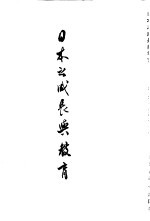 日本之成長與教育